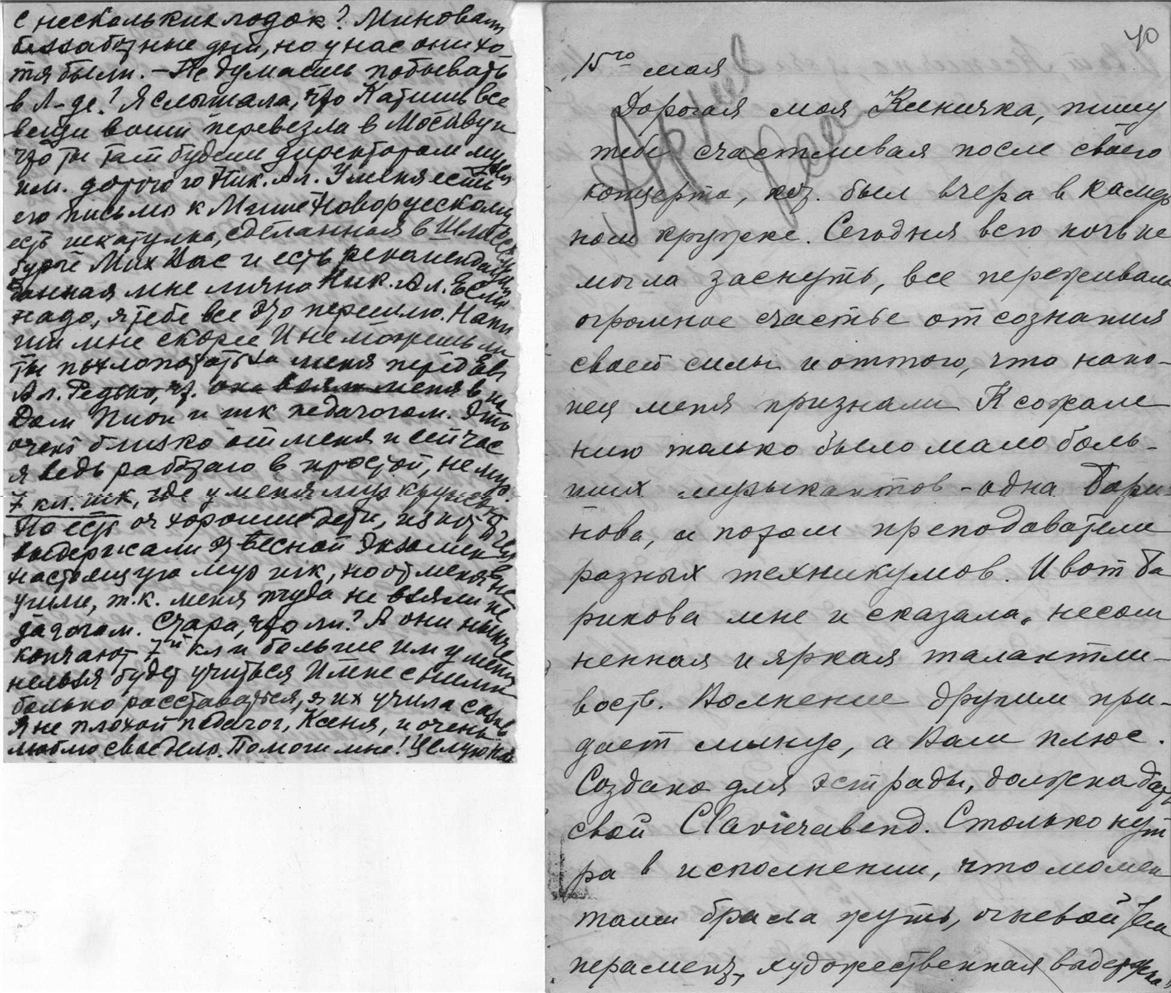 с нескольких лодок? Миновали
беззаботные дни, но у нас они хо
тя были. — Не думаешь побывать
в Л-де? Я слышала, что Катишь все
вещи ваши перевезла в Москву и
что ты там будешь директором музея
им. дорогого Ник. Ал. У меня есть
его письмо к Мише Новорусскому
есть шкатулка, сделанная в Шлиссель
бурге Мих Вас и есть рекомендация
данная мне лично Ник. Ал. Если
надо, я тебе все это перешлю. Напи
ши мне скорее И не можешь ли
ты похлопотать за меня перед
Ал. Редько, чт. она взяла меня в
Дом Пион и шк педагогом. Это
очень близко от меня и сейчас
я ведь работаю в простой, не муз
7 кл. шк, где у меня муз кружок
Но есть оч хорошие дети, из кот
выдержали весной экзамен в
настоящую муз шк, но от меня не
ушли, т.к. меня туда не взяли пе
дагогом. Стара, что ли? А они нынче
кончают 7й кл и больше им у меня
нельзя будет учиться И мне с ними
больно расставаться, я их учила сама
Я не плохой педагог, Ксеня, и очень
люблю свое дело. Помоги мне! Целую
40
15го мая
Дорогая моя Ксеничка, пишу
тебе счастливая после своего
концерта, кот. был вчера в камер
ном кружке. Сегодня всю ночь не
могла заснуть, все переживала
огромное счастье от сознания
своей силы и оттого, что нако-
нец меня признали К сожале
нию только было мало боль-
ших музыкантов - одна Бари
нова, а потом преподаватели
разных техникумов. И вот Ба
ринова мне и сказала, несом
ненная и яркая талантли-
вость. Волнение другим при-
дает минус, а Вам плюс.
Создана для эстрады, должна дать
свой Clavierabend. Столько нут
ра в исполнении, что момен
тами брала жуть, огневой тем
перамент, художественная выдержка